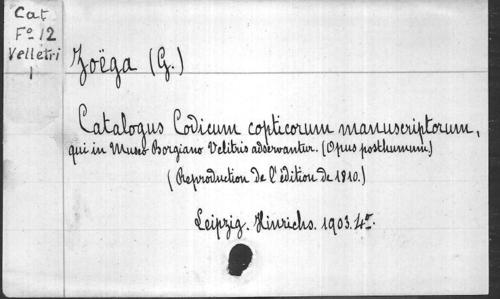 Cat
Fº 12
Velletri
1
Zoëga (G.)
Catalogus Codicum copticorum manuscriptorum,
qui in Museo Borgiano Velitris adservantur. (Opus posthumum)
(Reproduction de l'édition de 1810.)
Leipzig. Hinrichs. 1903. 4º.